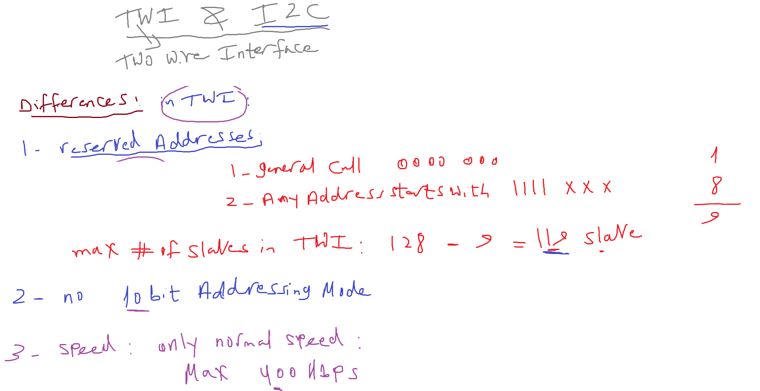 TWI & I2C
Two wire Interface
Differences: in TWI:
1- reserved Addresses:
1- general Call 0000 000
2- Any Address starts with 1111 xxx
1
8
9
max # of slaves in TWI: 128 - 9 = 119 slave
2- no 10 bit Addressing Mode
3- speed: only normal speed:
Max 400 Kbps